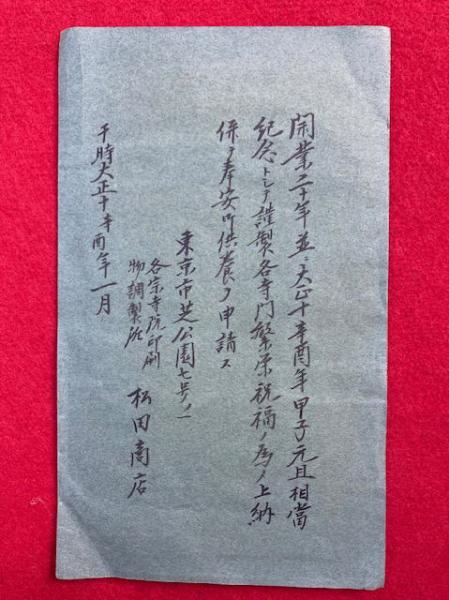 開業二十年並ニ大正十辛酉年甲子元旦相當
紀念トシテ謹製各寺門繁栄祝福ノ為メ上納
併テ奉安御供養ヲ申請ス
東京市芝公園七号ノ一
各宗寺院印刷
物調製所
松田商店
干時大正十辛酉年一月